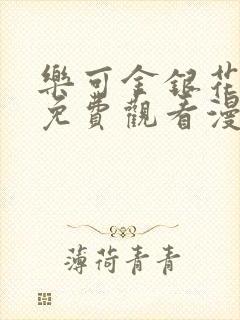 樂可金銀花
免費觀看漫
薄荷青青